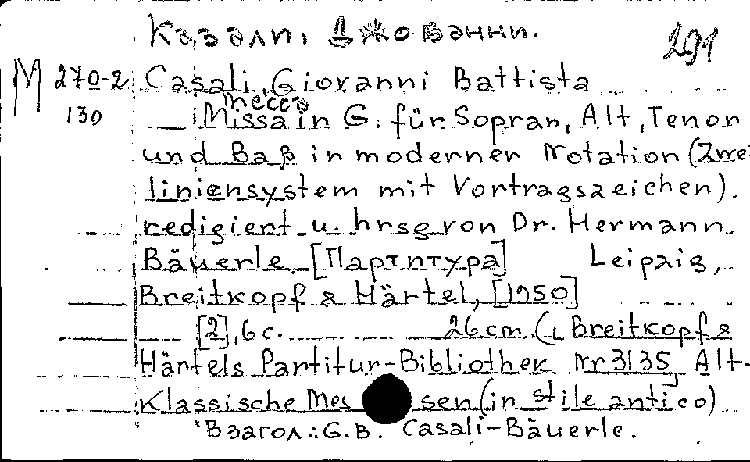 Казали, Джованни.
291
М 270-2 Casali, Giovanni Battista
месса
130 Missa in G. für Sopran, Alt, Tenor
und Baß in moderner Notation (Zwei
liniensystem mit Vortragszeichen).
redigiert u. hrsg von Dr. Hermann
Bäuerle. [Партитура] Leipzig,
Breitkopf & Härtel, [1950]
[2], 6 с. 26 cm. (Breitkopf &
Härtels Partitur-Bibliothek Nr 3135, Alt-
Klassische Mes sen (in stile antico)
В загол.: G. B. Casali-Bäuerle.